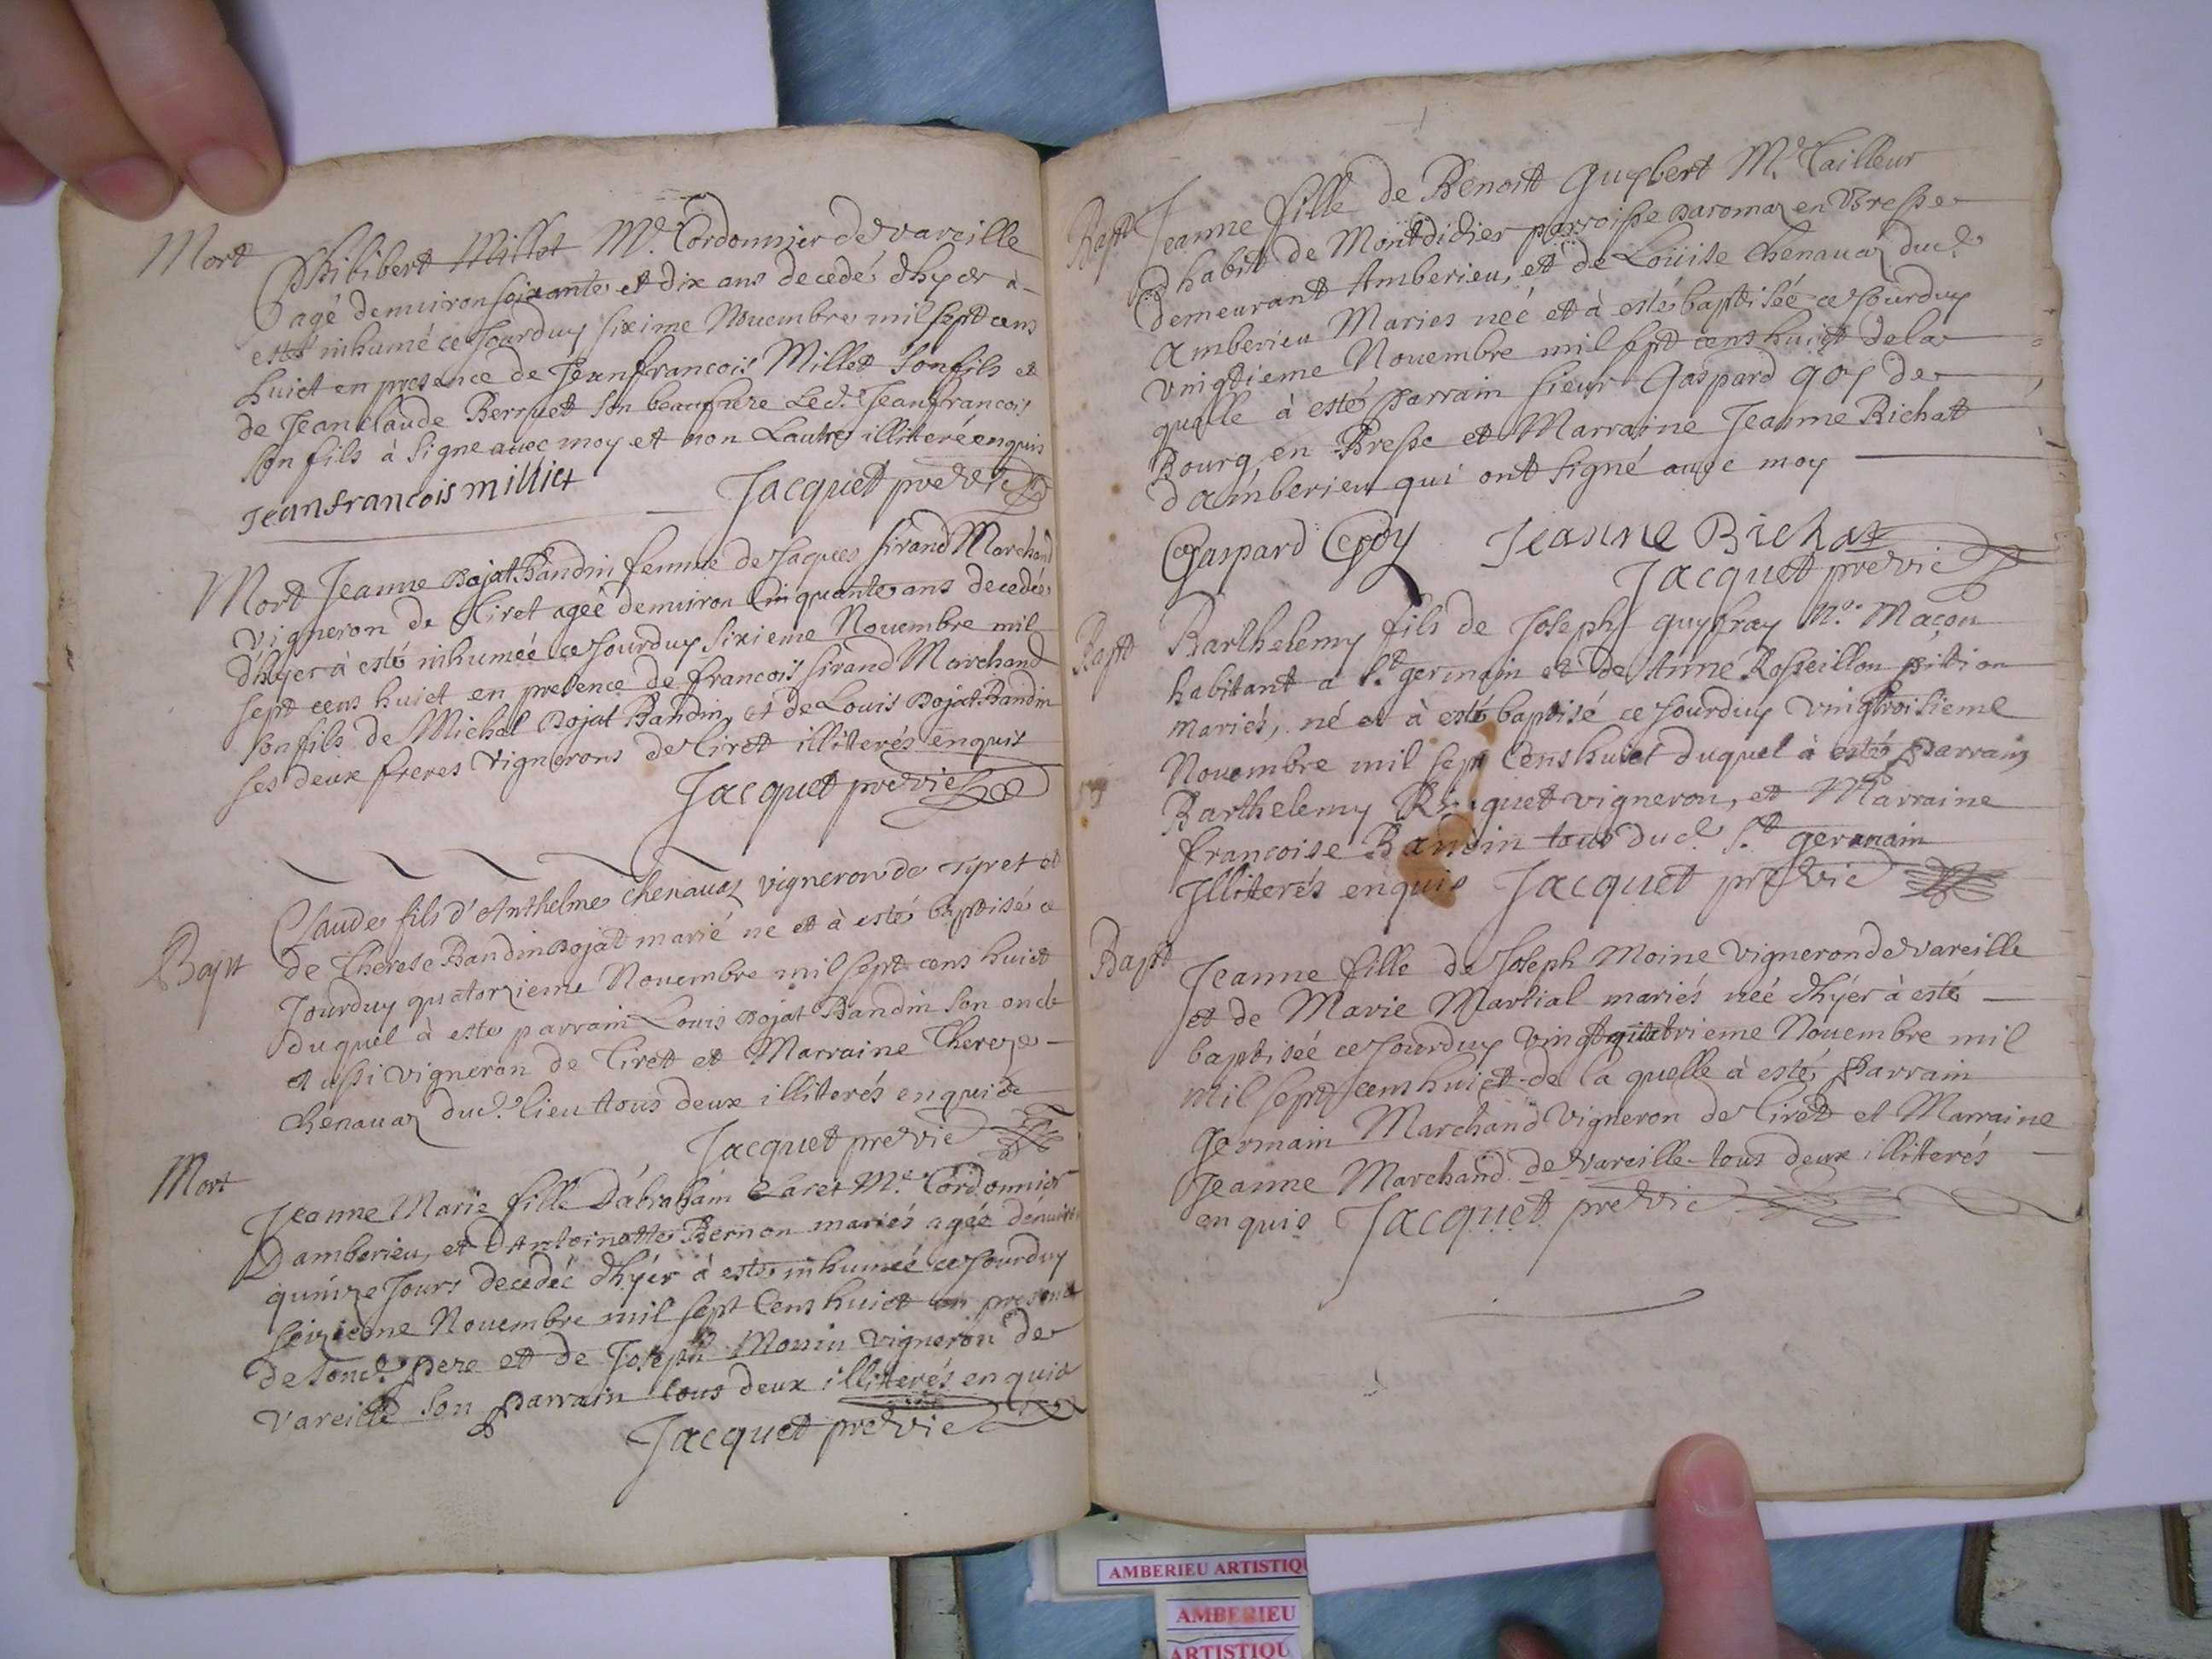 Mort
Philibert Millet Me. Cordonnier de vareille
agé denuiron soixante et dix ans decedé dhyer à
esté inhumé ce Jourduy sixime Nouembre mil sept cens
huict en presence de Jean francois Millet son fils et
de Jean claude Berruet son beaufrere Led. Jeanfrancois
son fils à signe auec moy et non Lautre illiteré enquis
Jeanfrancois milliet Jacquet pre vic
Mort Jeanne Bojat Bandin femme de Jacques sirand Marchand
vigneron de tiret ageé denuiron Cinquante ans decedeé
dhyer à esté inhumeé ce Jourduy sixieme Nouembre mil
sept cens huict en presence de francois sirand Marchand
son fils de Michel Bojat Bandin, et de Louis Bojat Bandin
ses deux freres vignerons de tiret illiterés enquis
Jacquet pre vic
Bapt
Claude fils d'Anthelme chenauaz vigneron de Tyret et
de Therese Bandin Bojat marié ne et à esté baptisé ce
Jourduy quatorzieme Nouembre mil sept cens huict
duquel à esté parrain Louis Bojat Bandin son oncle
aussi vigneron de Tiret et Marraine Thereze
chenauaz dud. lieu tous deux illiterés enquis
Jacquet pre vic
Mort
Jeanne Marie fille D'abraham Claret Me. Cordonnier
D'amberieu, et d'Antoinette Bernon mariés agée denuiron
quinze Jours decedéé dhyér à esté inhumeé ce Jourduy
seizieme Nouembre mil sept Cens huict en presence
de sond. pere et de Joseph Monin vigneron de
vareille son parrain tous deux illiterés enquis
Jacquet pre vic
Bapt
Jeanne fille de Benoitt Guybert Me. Tailleur
d habit de Montdidier parroisse daromaz en Bresse
demeurant Amberieu, et de Loüise Chenauaz dud.
Amberieu Maries neé et à esté baptisée ce Jourduy
vnigtieme Nouembre mil sept cens huict dela
quelle à esté parrain sieur Gaspard Goy de
Bourg en Bresse et Marraine Jeanne Bichatt
d'amberieu qui ont signé auec moy
Gaspard Goy Jeanne Bichat
Jacquet pre vic
Bapt
Barthelemy fils de Joseph guyfray Me. Maçon
habitant a St germain et de Anne Rosseillon pition
mariés, né et à esté baptisé ce Jourduy vingtroisieme
Nouembre mil sept Cens huict duquel à esté parrain
Barthelemy vigneron, et Marraine
francoise Bandin tous dud. St germain
Illiterés enquis Jacquet pre vic
Bapt
Jeanne fille de Joseph Moine vigneron de vareille
et de Marie Martial mariés neé dhyér à esté
baptiséé ce Jourduy vingt quatrieme Nouembre mil
mil sept cens huict de la quelle à esté parrain
Germain Marchand vigneron de tiret et Marraine
Jeanne Marchand de vareille tous deux illiterés
enquis Jacquet pre vic
AMBERIEU ARTISTIQU
AMBERIEU
ARTISTIQU